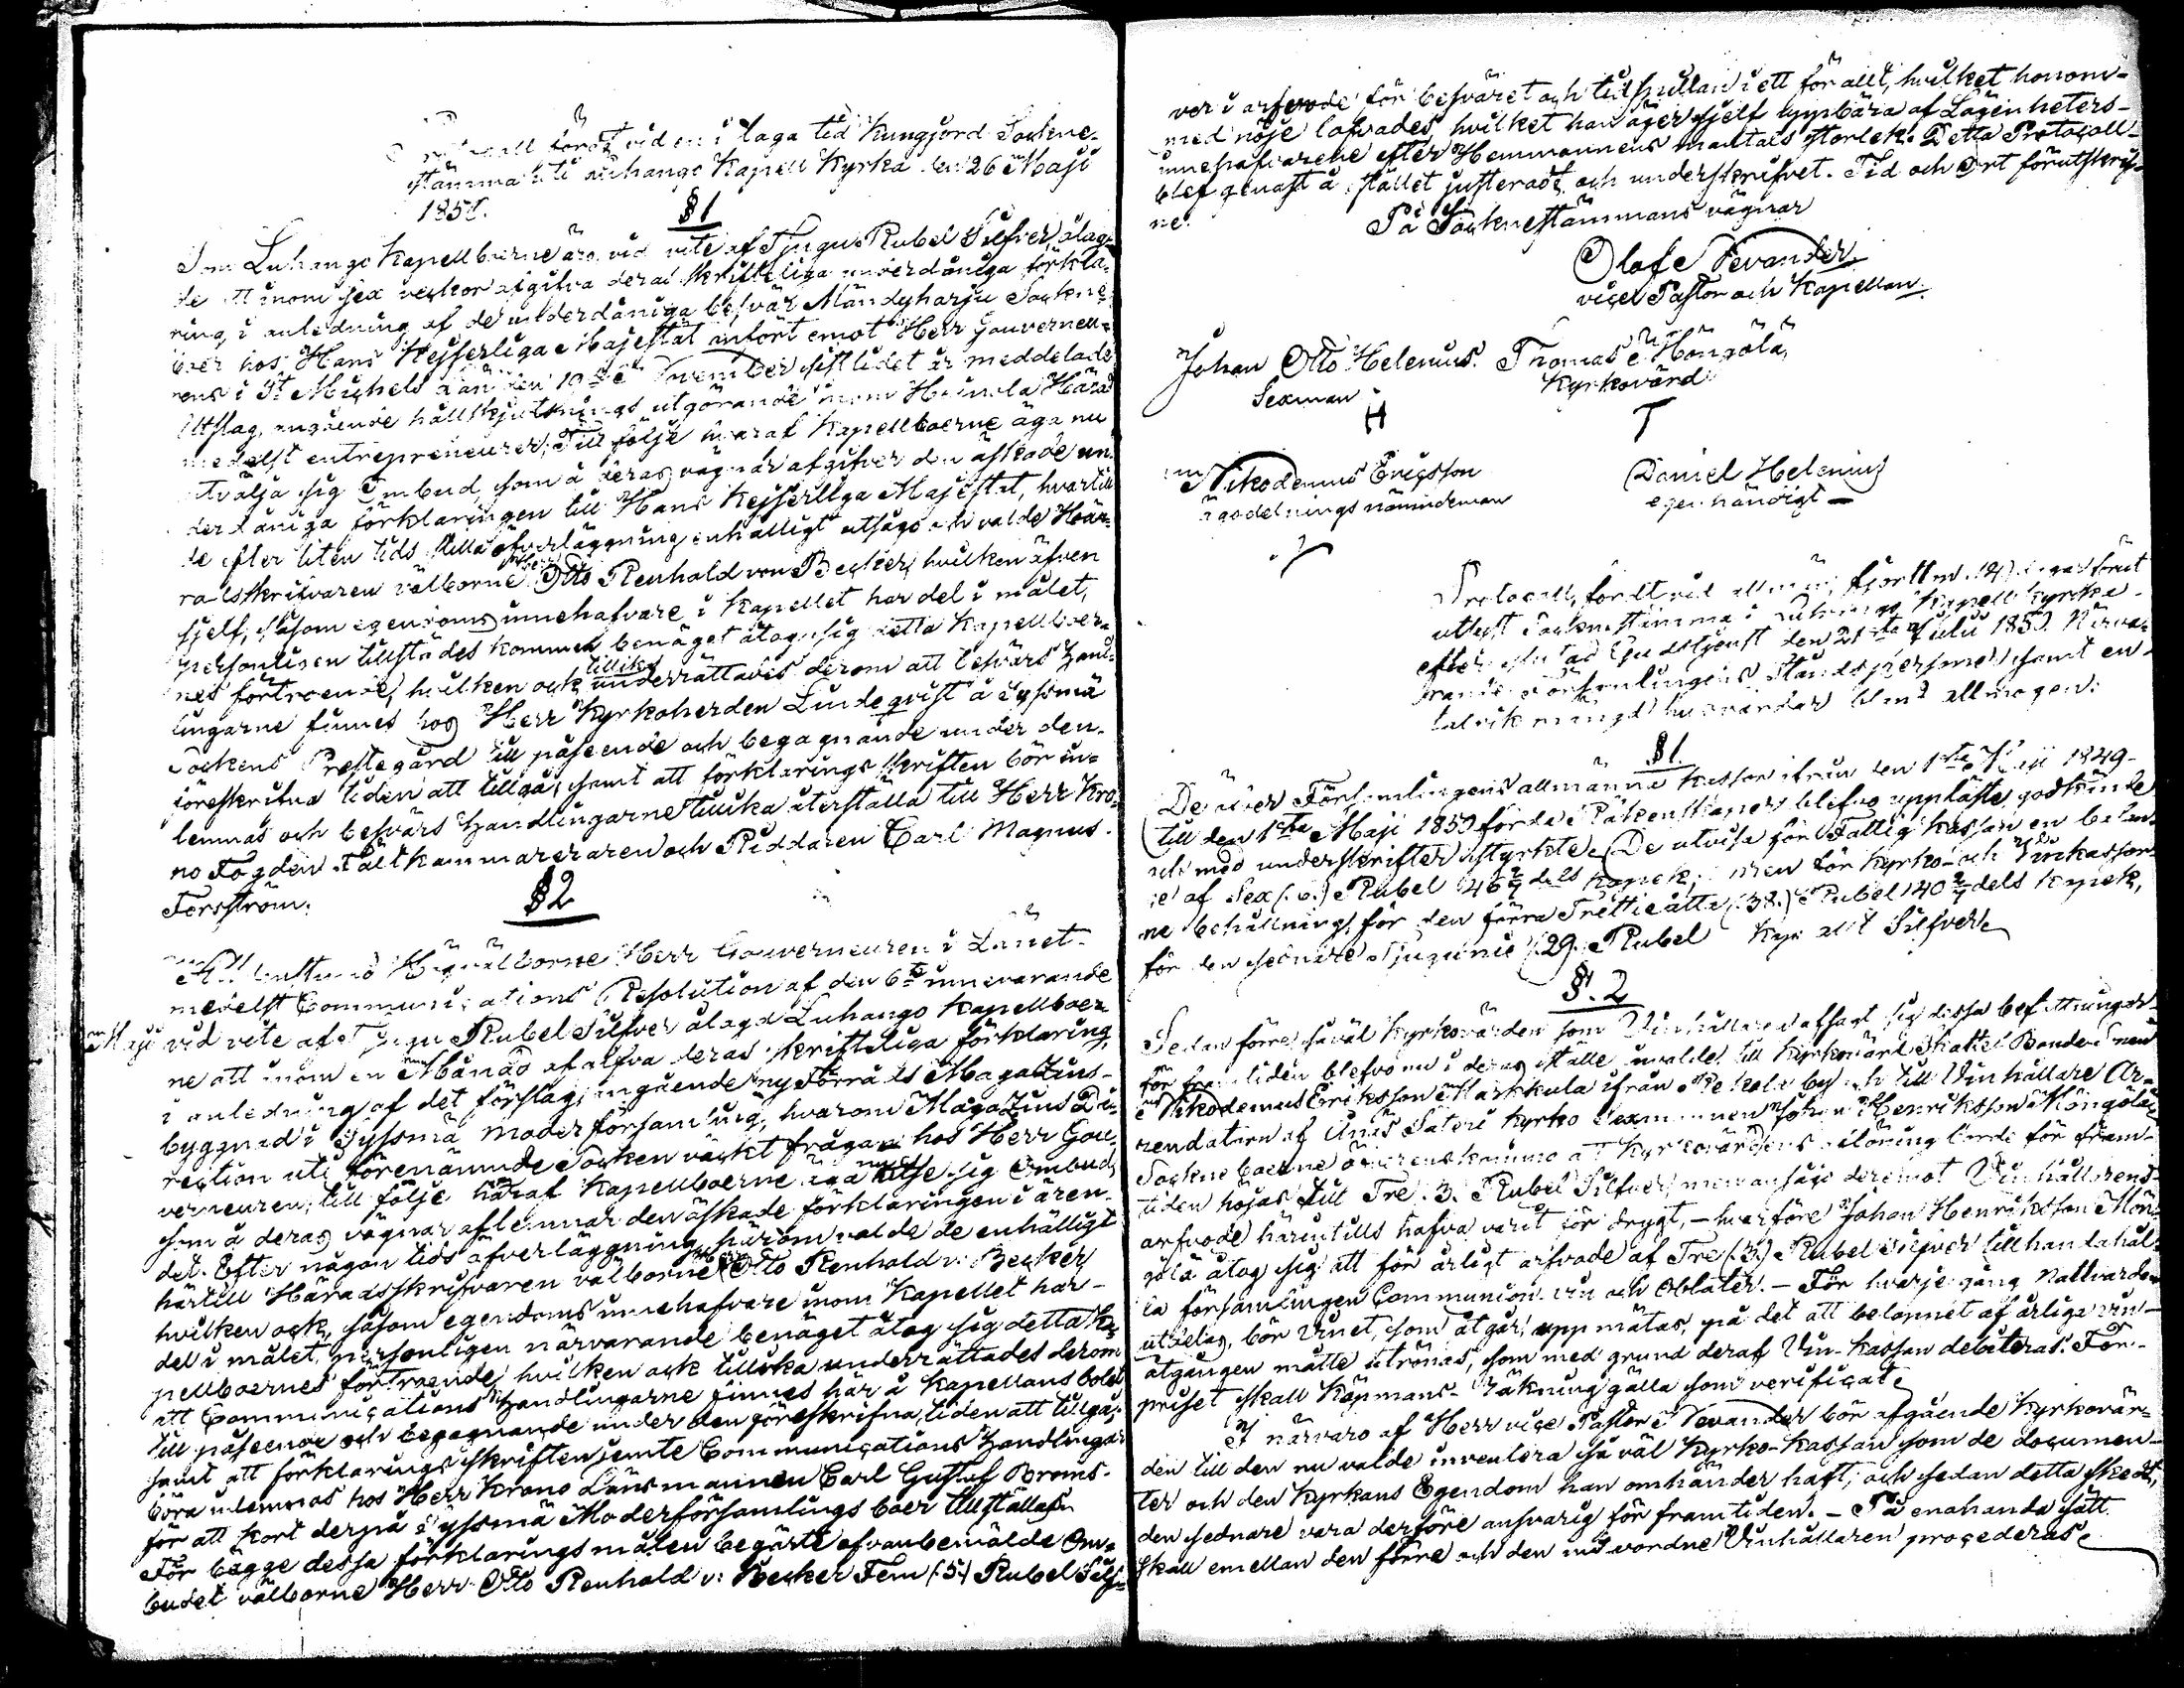 Protocoll fördt vid en i laga tid kungjord Sockne-
stämma uti Luhango Kapell Kyrka den 26 Maji
1850.
§ 1
Som Luhango Kapellboerne äro vid vite af Tjugu Rubel Silfver ålag-
de att inom sex veckor afgifva deras skrifteliga underdåniga förkla-
ring, i anledning af de underdåniga besvär Mändyharju Sockne-
boer hos Hans Kejserliga Majestät anfört emot Herr Gouverneu-
rens i St Michels Län den 19de November sistlidet år meddelade
Utslag, angående hållskjutsnings utgörande inom Heinola Härad
medelst entrepreneurer; Till följe hvaraf Kapellboerne äga nu
utvälja sig Ombud, som å deras vägnar afgifver den äskade un-
derdåniga förklaringen till Hans Kejserliga Majestät, hvartill
de efter liten tids öfverläggning enhälligt utsågo och valde Hära-
radsskrifvaren välborne Herr Otto Renhold von Becker, hvilken äfven
sjelf, såsom egendoms innehafvare i Kapellet har del i målet,
personligen tillstädes kommen benäget åtog sig detta Kapellboer-
nes förtroende, hvilken ock tillika underrättades derom att besvärs hand-
lingarne finnes hos Herr Kyrkoherden Lindeqvist å Sysmä
Sockens Prestegård till påseende och begagnande under den
föreskrifna tiden att tillgå, samt att förklarings skriften bör in-
lemnas och besvärs Handlingarne tillika återställa till Herr Kro-
no Fogden Fältkammareraren och Riddaren Carl Magnus
Forsström.
§ 2
Högvälborne Herr Gouverneuren i Länet
medelst Communications Resolution af den 6te innevarande
Maji vid vite af Tjugu Rubel Silfver ålagd Luhango Kapellboer-
ne att inom en Månad afgifva deras skrifteliga förklaring,
i anledning af det förslag, angående ny Förråds Magazins-
byggnad i Sysmä Moderförsamling, hvarom Magazins Di-
rection uti förenämnde Socken väckt frågan hos Herr Gou-
verneuren; till följe häraf Kapellboerne äga utse sig Ombud,
som å deras vägnar aflemnar den äskade förklaringen i ären-
det. Efter någon tids öfverläggning härom valde de enhälligt
härtill Häradsskrifvaren välborne Herr Otto Renhold v: Becker
hvilken ock, såsom egendoms innehafvare inom Kapellet har
del i målet, personligen närvarande benäget åtog sig detta Ka-
pellboernes förtroende, hvilken ock tillika underrättades derom
att Communications Handlingarne finnes här å Kapellans bolet
till påseende och begagnande under den föreskrifna tiden att tillgå,
samt att förklarings skriften jemte Communications Handlingar
böra inlemnas hos Herr Krono Länsmannen Carl Gustaf Broms-
för att kort derpå Sysmä Moderförsamlings boer tillställas.
För begge dessa förklarings målen begärte ofvanbemälde Om-
budet välborne Herr Otto Renhold v: Becker Fem (5) Rubel Silf-
ver i arfvode för besväret och tidspillan i ett för allt, hvilket honom
med nöje lofvades, hvilket han äger sjelf uppbära af Lägenheters
innehafvarene efter Hemmanens mantals storlek. Detta Protocoll
blef genast å stället justeradt och underskrifvet. Tid och Ort förutskrif-
ne.
På Socknestämmans vägnar
Olofe Nevander
vice Pastor och Kapellan.
Johan Otto Helenius. Thomas Höngölä,
Sexman Kyrkovärd
H T
Nikodemus Ericsson Daniel Helenius
ägodelnings nämndeman egenhändigt
Protocoll, fördt vid allmän, fjorton (14) dagar förut
utlyst Sockenstämma i Luhango Kapell Kyrka
efter slutad Gudstjenst den 21sta Julii 1850. Närva-
rande Församlingens Ståndspersoner samt en
talrik mängd husbönder bland allmogen:
§ 1
De öfver Församlingens allmänna Kassor ifrån den 1sta Maji 1849
till den 1sta Maji 1850 förde Räkenskaper blefvo uppläste, godkände
och med underskrifter styrkte. De utvisa för Fattig kassan en balan-
ce af Sex (6.) Rubel 46 2/7 dels kopek; men för Kyrko- och Vinkassor-
ne behållning, för den förra Trettioåtta (38.) Rubel 40 2/7 dels kopek,
för den sednare Tjugunie (29.) Rubel Kop allt Silfver.
§. 2
Sedan förre såväl Kyrkovärden som Vinhållaren afsagt sig dessa befattningar
för framtiden blefvo nu i deras ställe invalde till Kyrkovärd Skatte Bonden
Nikodemus Eriksson Markkula ifrån by och till Vinhållare Ar-
rendatorn af Säteri Kyrko Sexmannen Johan Henriksson Möngölä,
Sockneboerne öfverenskommo att Kyrkovärdens aflöning borde för fram-
tiden höjas till Tre (3.) Rubel Silfver, men ansågo deremot Vinhållarens
arfvode härintills hafva varit för drygt, — hvarföre Johan Henriksson Mön-
gölä åtog sig att för årligt arfvode af Tre (3.) Rubel Silfver tillhandahål-
la församlingen Communion vin och Oblater. — För hvarje gång Nattvarden
utdelas, bör Vinet, som åtgår, uppmätas, på det att beloppet af årliga vin-
åtgången måtte utrönas, som med grund deraf Vin-kassan debiteras. För
priset skall Köpmans-Räkning gälla som verificat.
I närvaro af Herr vice Pastor Nevander bör afgående Kyrkovär-
den till den nu valde inventera så väl Kyrko-Kassan som de documen-
ter och den Kyrkans Egendom han omhänder haft; och sedan detta skedt,
den sednare vara derföre ansvarig för framtiden. — På enahanda sätt
skall emellan den förre och den nu vordne Vinhållaren procederas.